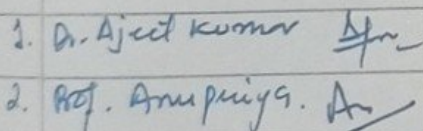 1. Dr. Ajeet Kumar
2. Prof. Anupriya.